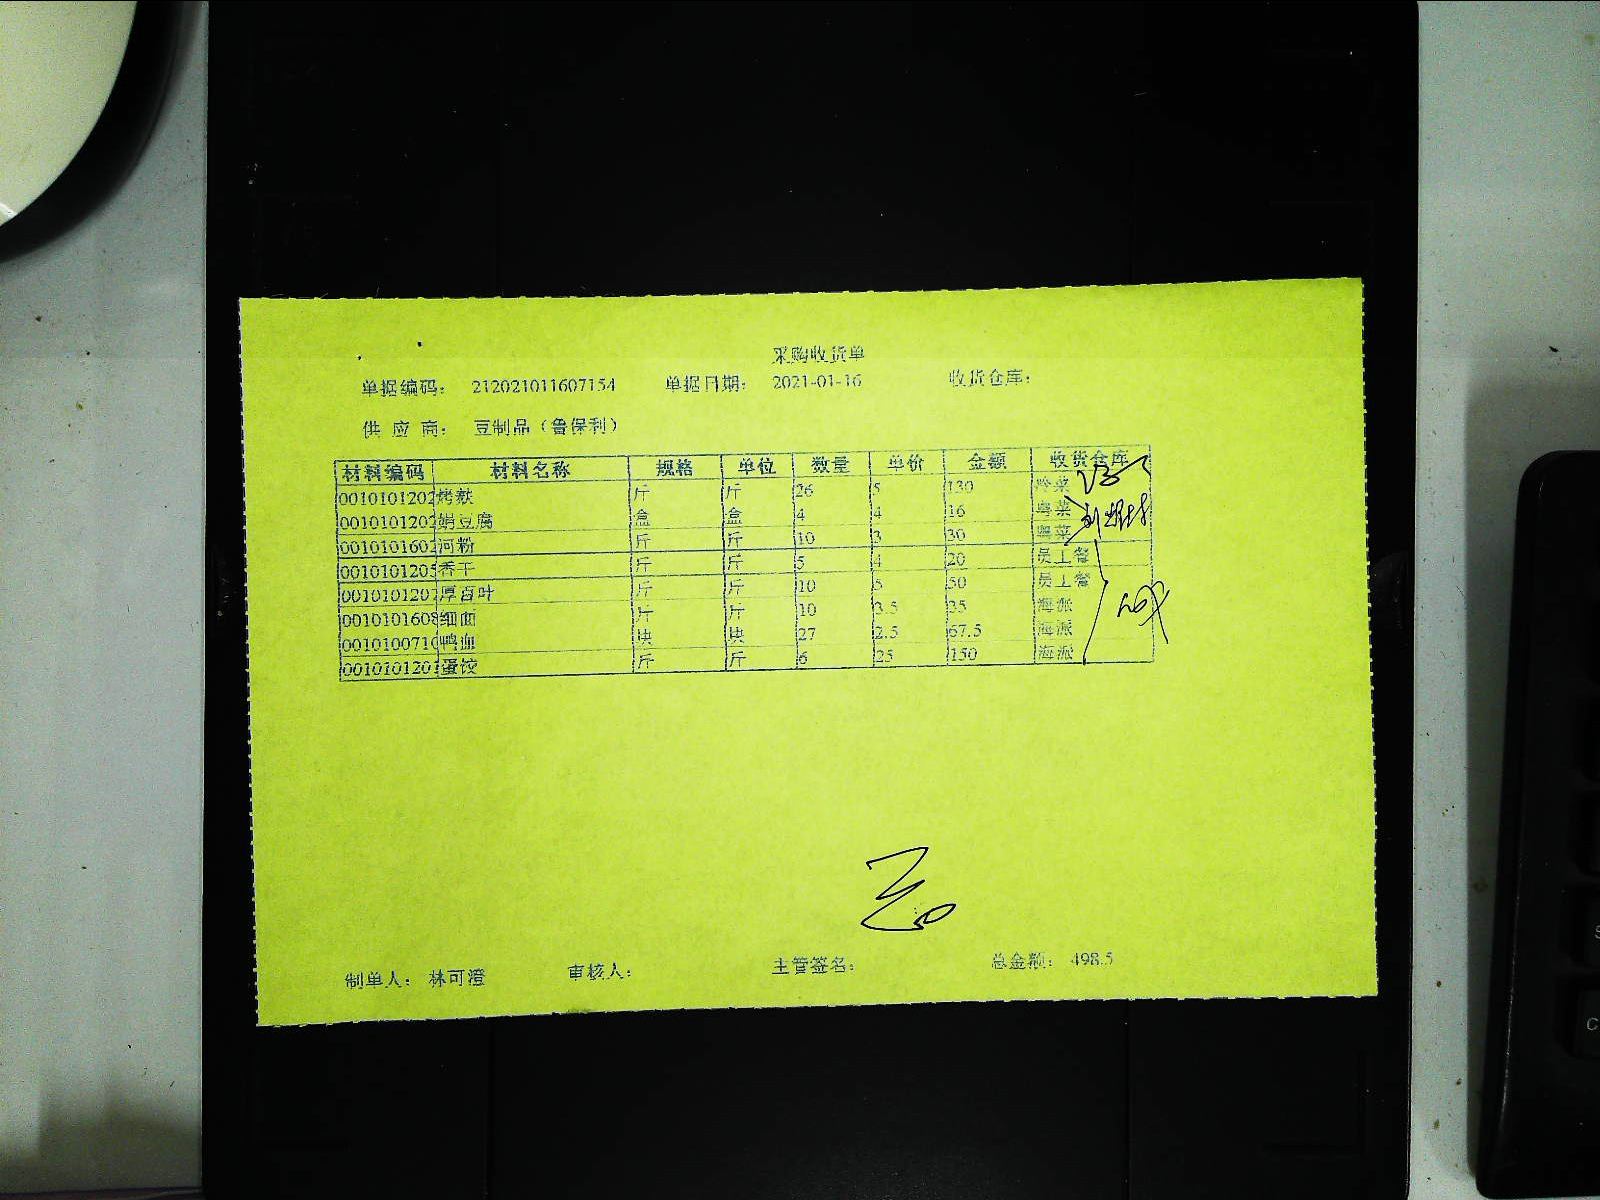 采购收货单
单据编码： 212021011607154 单据日期： 2021-01-16 收货仓库：
供 应 商： 豆制品（鲁保利）
材料编码 材料名称 规格 单位 数量 单价 金额 收货仓库
0010101202 烤麸 斤 斤 26 5 130 冷菜
0010101202 绢豆腐 盒 盒 4 4 16 粤菜
0010101602 河粉 斤 斤 10 3 30 粤菜
0010101205 香干 斤 斤 5 4 20 员工餐
0010101207 厚百叶 斤 斤 10 5 50 员工餐
0010101608 细面 斤 斤 10 3.5 35 海派
0010100710 鸭血 块 块 27 2.5 67.5 海派
0010101201 蛋饺 斤 斤 6 25 150 海派
制单人： 林可澄 审核人： 主管签名： 总金额： 498.5